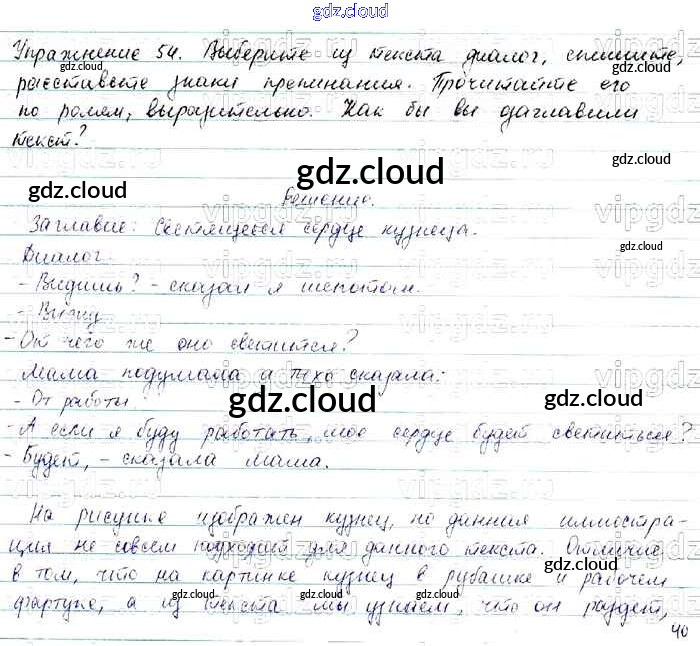 gdz.cloud
Упражнение 54. Выберите из текста диалог, спишите,
расставьте знаки препинания. Прочитайте его
по ролям, выразительно. Как бы вы озаглавили
текст?
Решение.
Заглавие: Светящееся сердце кузнеца.
Диалог:
- Видишь? - сказал я шепотом.
- Вижу
- От чего же оно светится?
Мама подумала и тихо сказала:
- От работы.
- А если я буду работать, мое сердце будет светиться?
- Будет, - сказала мама.
На рисунке изображен кузнец, но данная иллюстра-
ция не совсем подходит для данного текста. Отличие
в том, что на картинке кузнец в рубашке и рабочем
фартуке, а из текста мы узнаем, что он раздет,
40